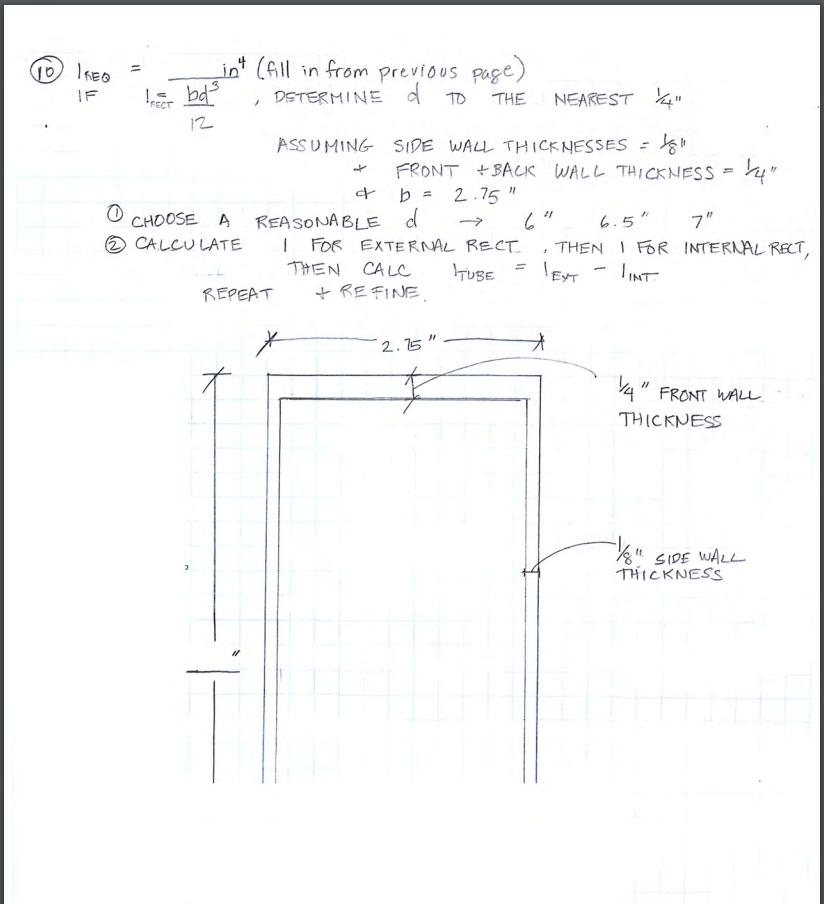 10 I REQ = ____ in⁴ (fill in from previous page)
IF I RECT = bd³ / 12 , DETERMINE d TO THE NEAREST 1/4"
ASSUMING SIDE WALL THICKNESSES = 1/8"
+ FRONT + BACK WALL THICKNESS = 1/4"
+ b = 2.75"
① CHOOSE A REASONABLE d → 6" 6.5" 7"
② CALCULATE I FOR EXTERNAL RECT , THEN I FOR INTERNAL RECT,
THEN CALC I TUBE = I EXT - I INT
REPEAT + REFINE.
2.75"
1/4" FRONT WALL
THICKNESS
1/8" SIDE WALL
THICKNESS
"